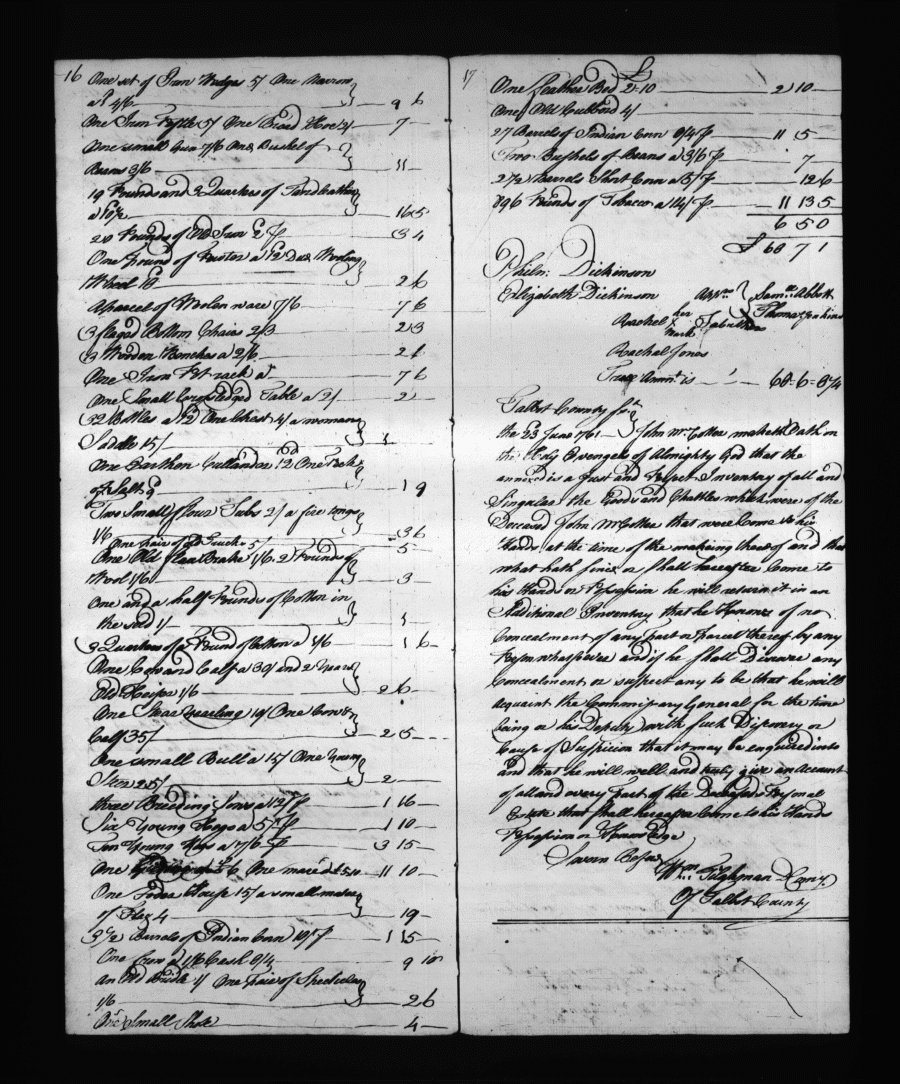 16
One set of Iron Wedges 5/ One Narrow
at 4/6 9 6
One Iron Kettle 5/ One Broad Hoe 2/ 7
One small Gun 7/6 One Bushel of
Beans 3/6 11
19 Pounds and 3 Quarters of
16 5
20 Pounds of Old Iron 2 3 4
One Pound of Pewter a Woolen
Wheel 2 6
A parcel of Wooden ware 7/6 7 6
3 flagd Bottom Chairs 2/3 2 3
3 Wooden Benches a 2/6 2 6
One Iron Pot rack a 7 6
One Small Table a 2/ 2
32 Bottles a One Chest 4/ a womans
Saddle 15/ 1
One Earthen One Peck
of Salt 9 1 9
Two Small flour Tubs 2/ a fire tongs
1/6 3 6
One pair of old 5/ 5
One Old flax Brake 1/6 2 Pounds of
Wool 1/6 3
One and a half Pounds of Cotton in
the seed 1/ 1
3 Quarters of a Pound of Cotton a 1/6 1 6
One Cow and Calf a 30/ and 2 Years
Old Heifer 1/6 2 6
One Stear Yearling 10/ One Cow &
Calf 35/ 2 5
One small Bull a 15/ One Young
Steer 25/ 2
three Breeding Sows a 12/ p 1 16
Six Young Hogs a 5/ p 1 10
Ten Young Hogs a 7/6 p 3 15
One One mare 11 10
One House 15/ a small matter
of Flax 4 19
3 1/2 Barrels of Indian Corn 10/ p 1 15
One a 1/6 Cash 8/4 9 10
an Old Bridle 1/ One Pair of Spectacles
1/6 2 6
One Small Shote 4
17
One Leather Bed 2-10 2 10
One Old Cubbord 4/
27 Barrels of Indian Corn 8/4 p 11 5
Two Bushels of Beans a 3/6 p 7
2 1/2 Barrels Short Corn a 5/ p 12 6
Pounds of Tobacco a 14/ p 11 13 5
6 5 0
£ 68 7 1
Philn: Dickinson
Elizabeth Dickinson Saml Abbott
Rachel her mark Thomas Jenkins
Rachel Jones
True Amnt is 68-6-8 3/4
Talbot County Sst
the 23 June 1761 John McCottee maketh Oath on
the Holy Evengels of Almighty God that the
annexed is a Just and Perfect Inventory of all and
Singular the Goods and Chattles which were of the
Deceased John McCottee that were Come to his
Hands at the time of the makeing thereof and that
what hath since or Shall hereafter Come to
his Hands or Possession he will return it in an
Additional Inventory that he Knows of no
Concealment of any part or Parcel thereof by any
Person whatsoever and if he Shall Discover any
Concealment or suspect any to be that he will
acquaint the Commissary General for the time
being or his Deputy with such Discovery or
Cause of Suspicion that it may be enquired into
and that he will well and truly give an Account
of all and every part of the Deceaseds Personal
Estate that shall hereafter Come to his Hands
Possession or Knowledge
Sworn Before
Wm Tilghman Comry
Of Talbot County